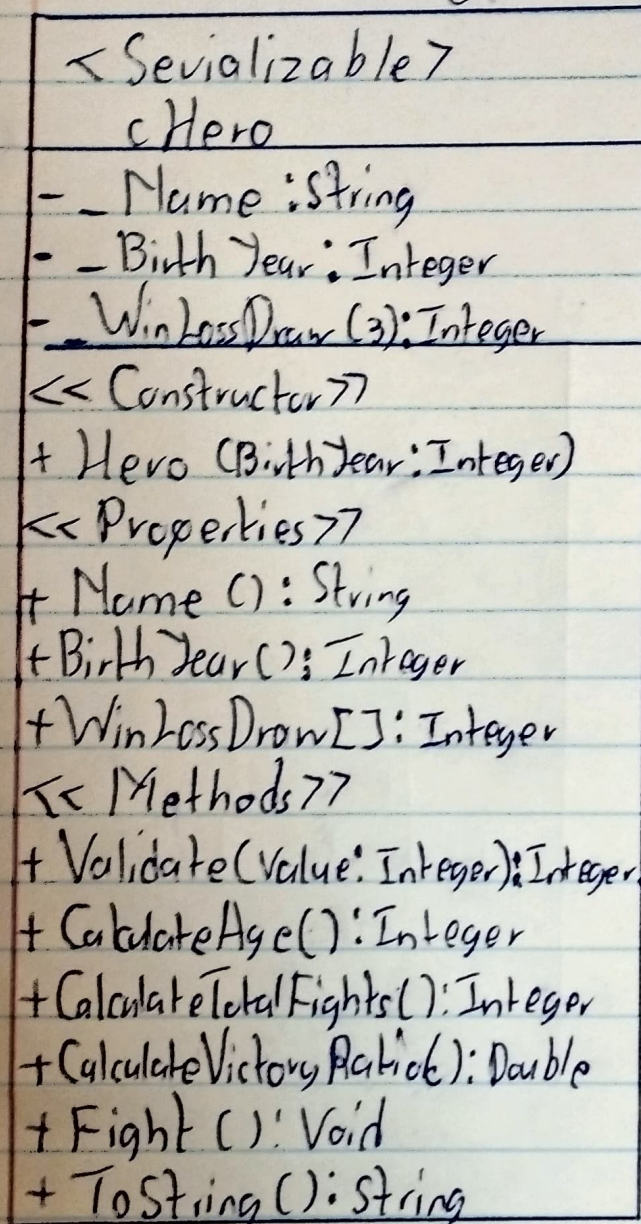 <Serializable>
cHero
- _Name : String
- _BirthYear : Integer
- _WinLossDraw (3) : Integer
<< Constructor >>
+ Hero (BirthYear : Integer)
<< Properties >>
+ Name () : String
+ BirthYear () : Integer
+ WinLossDraw [] : Integer
<< Methods >>
+ Validate (Value : Integer) : Integer
+ CalculateAge () : Integer
+ CalculateTotalFights () : Integer
+ CalculateVictoryRatio () : Double
+ Fight () : Void
+ ToString () : String